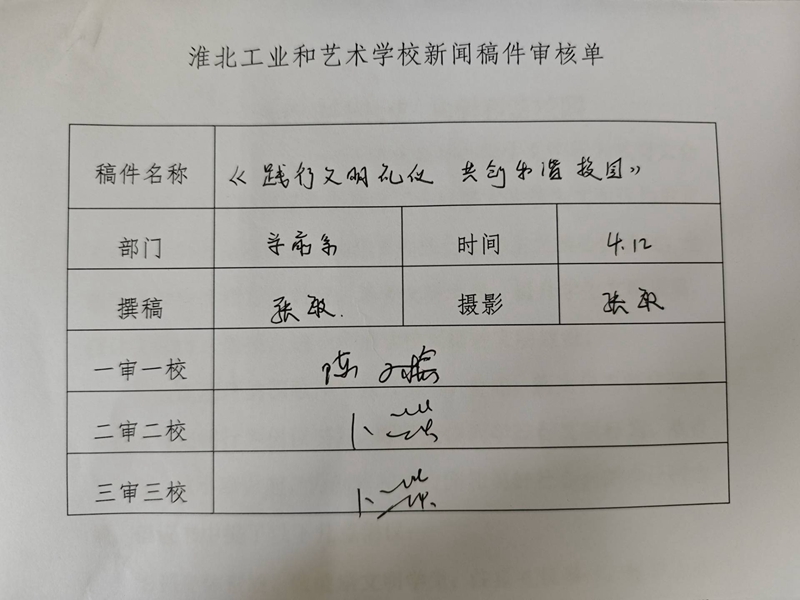 淮北工业和艺术学校新闻稿件审核单
稿件名称 《践行文明礼仪 共创和谐校园》
部门 时间 4.12
撰稿 张敏. 摄影 张敏
一审一校 陈
二审二校
三审三校